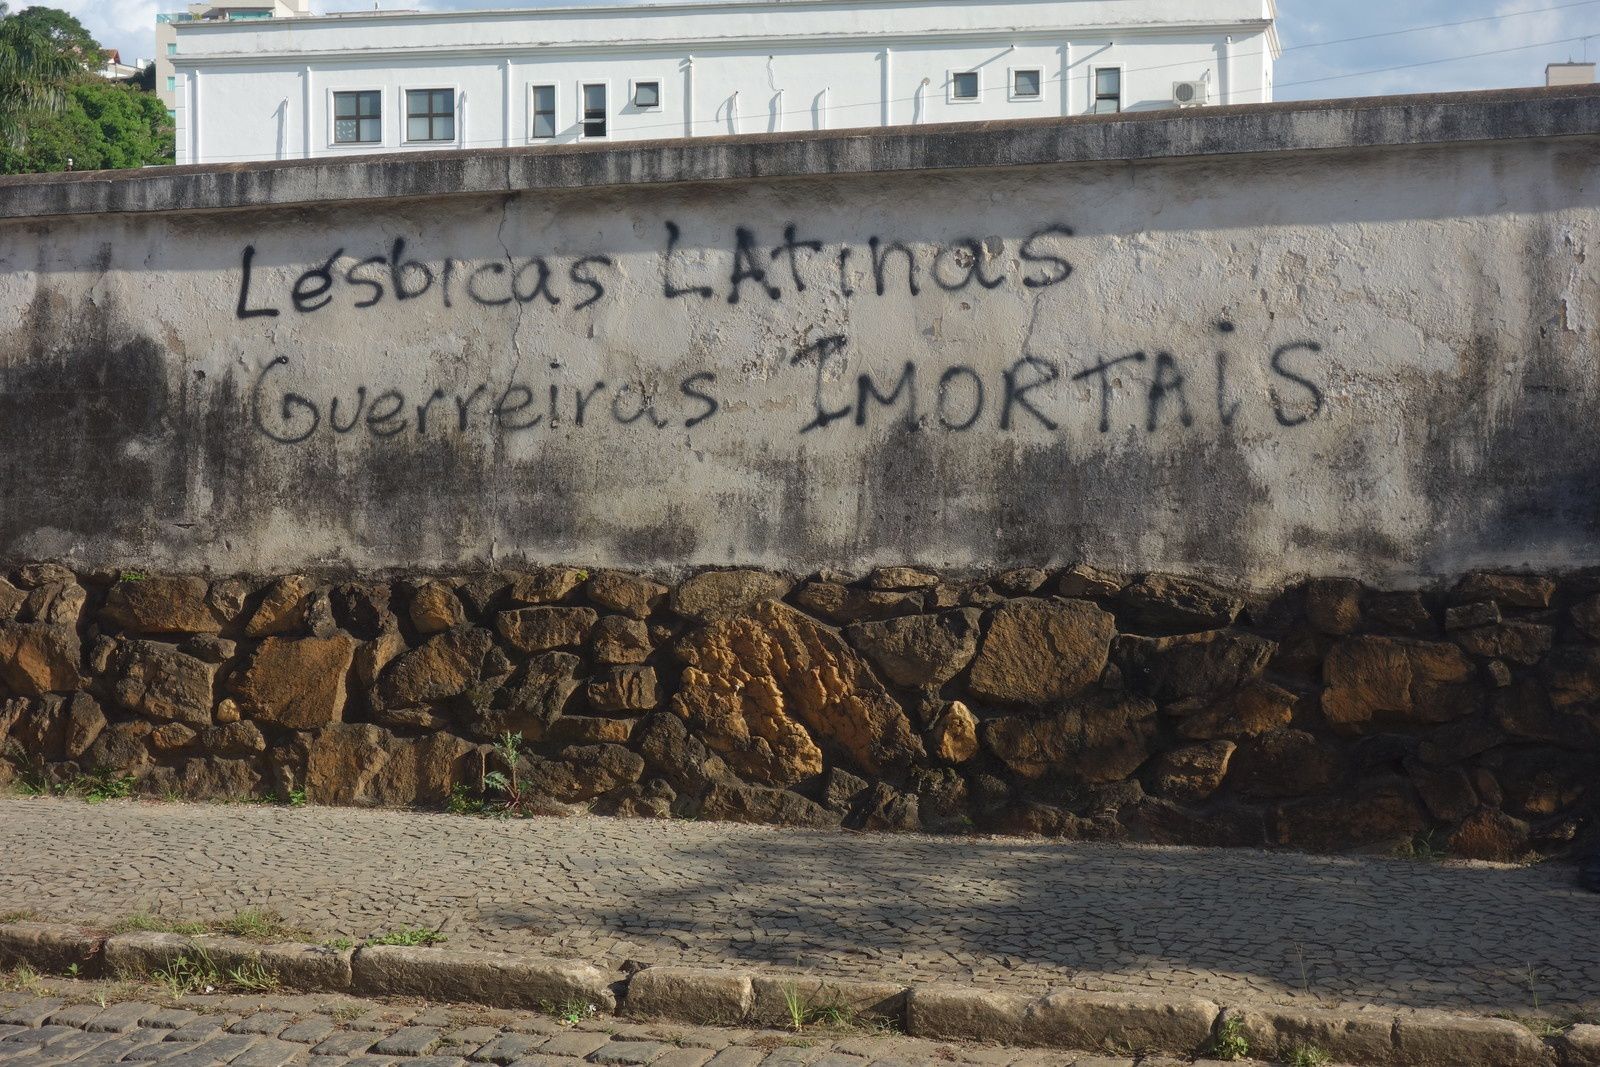 Lésbicas LAtinas
Guerreiras IMORTAiS